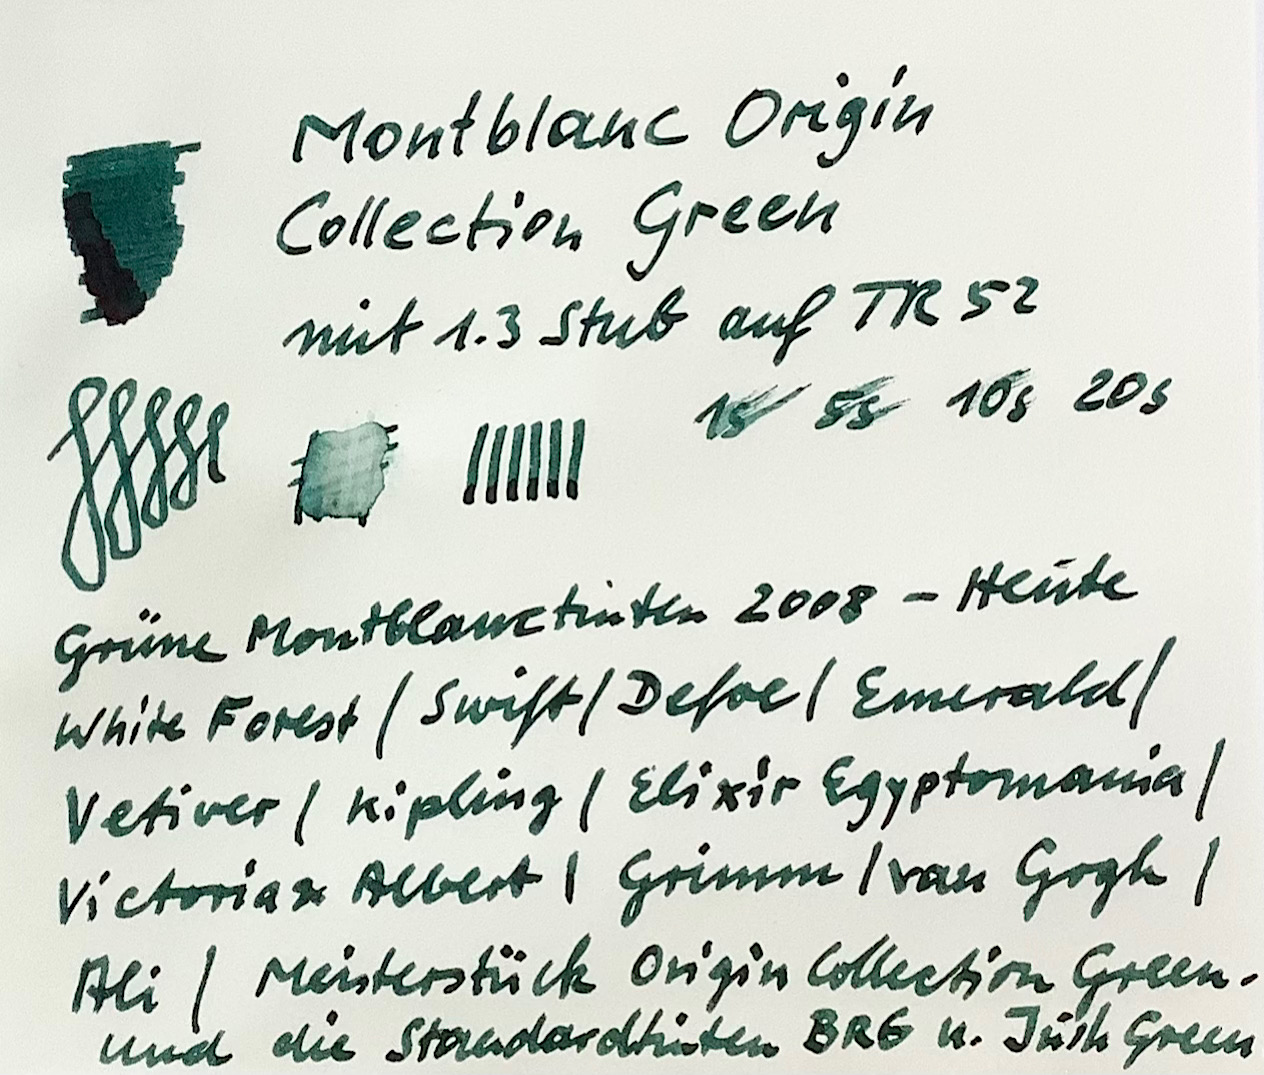 Montblanc Origin
Collection Green
mit 1.3 Stub auf TR 52
1s 5s 10s 20s
Grüne Montblanctinten 2008 - Heute
White Forest / Swift / Defoe / Emerald /
Vetiver / Kipling / Elixir Egyptomania /
Victoria & Albert / Grimm / van Gogh /
Ali / Meisterstück Origin Collection Green.
und die Standardtinten BRG u. Irish Green